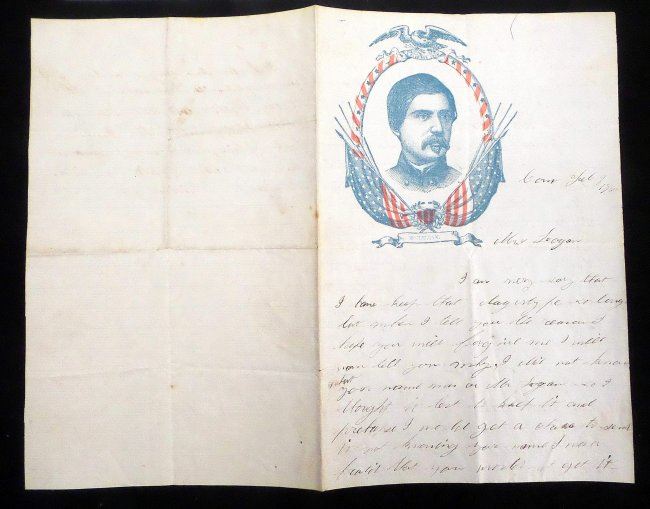 Mrs Logan
I am very sory that
I have keep that dagertype so long
but when I tell you the reason I
hope you will forgive me I will
now tell you why I did not know
what
your name was or Mr Logan so I
thought it best to keep it and
I would get a chance to send
it not knowing your name I was
that you would get it